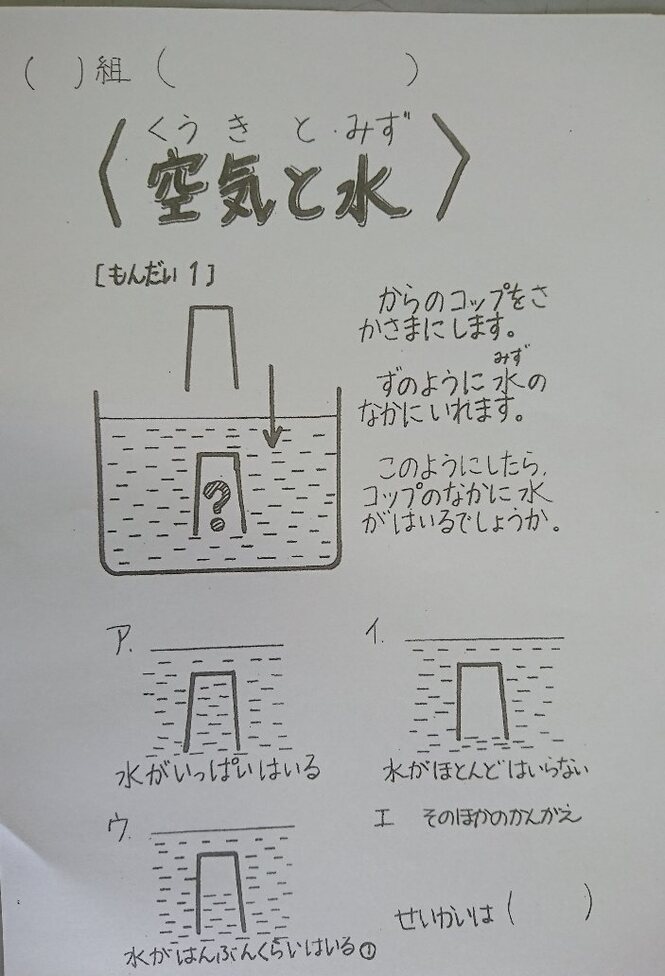 ( )組 ( )
くうきとみず
〈空気と水〉
[もんだい 1]
からのコップをさ
かさまにします。
みず
ずのように水の
なかにいれます。
このようにしたら、
コップのなかに水
がはいるでしょうか。
?
ア.
水がいっぱいはいる
イ.
水がほとんどはいらない
ウ.
水がはんぶんくらいはいる①
エ そのほかのかんがえ
せいかいは( )